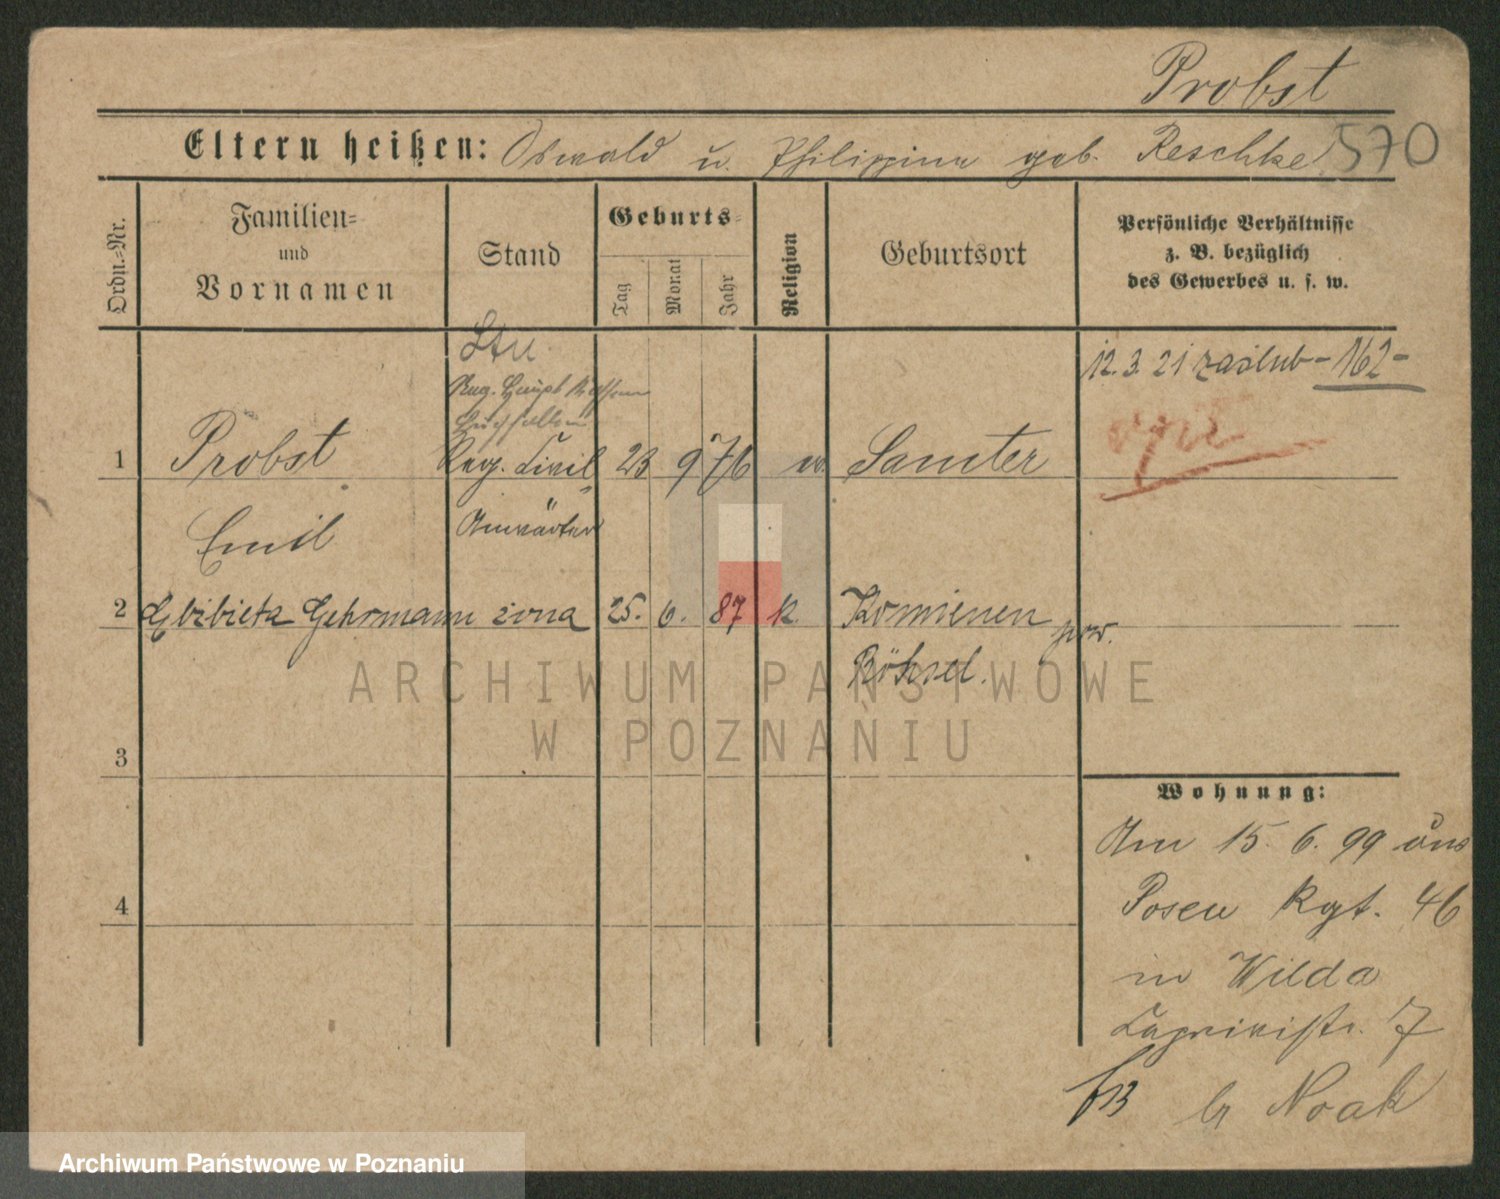 Probst
Eltern heißen: Oswald u. Philippine geb. Reschke 570
Ordn.-Nr.
Familien-
und
Vornamen
Stand
Geburts-
Tag
Monat
Jahr
Religion
Geburtsort
Persönliche Verhältnisse
z. B. bezüglich
des Gewerbes u. s. w.
12.3.21 zaślub - 162 -
Reg. Haupt
1 Probst Reg. Civil 23 9 76 Samter
Emil Anwärter
2 Elżbieta Gehrmann żona 25. 6. 87 k. Komienen pow.
Rössel.
3
4
Wohnung:
Am 15. 6. 99 aus
Posen Rgt. 46
in Wilda
7
b/ Noak
ARCHIWUM PAŃSTWOWE
W POZNANIU
Archiwum Państwowe w Poznaniu